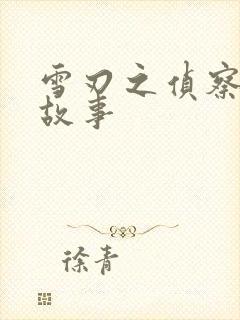 雪刃之偵察
故事
徐青